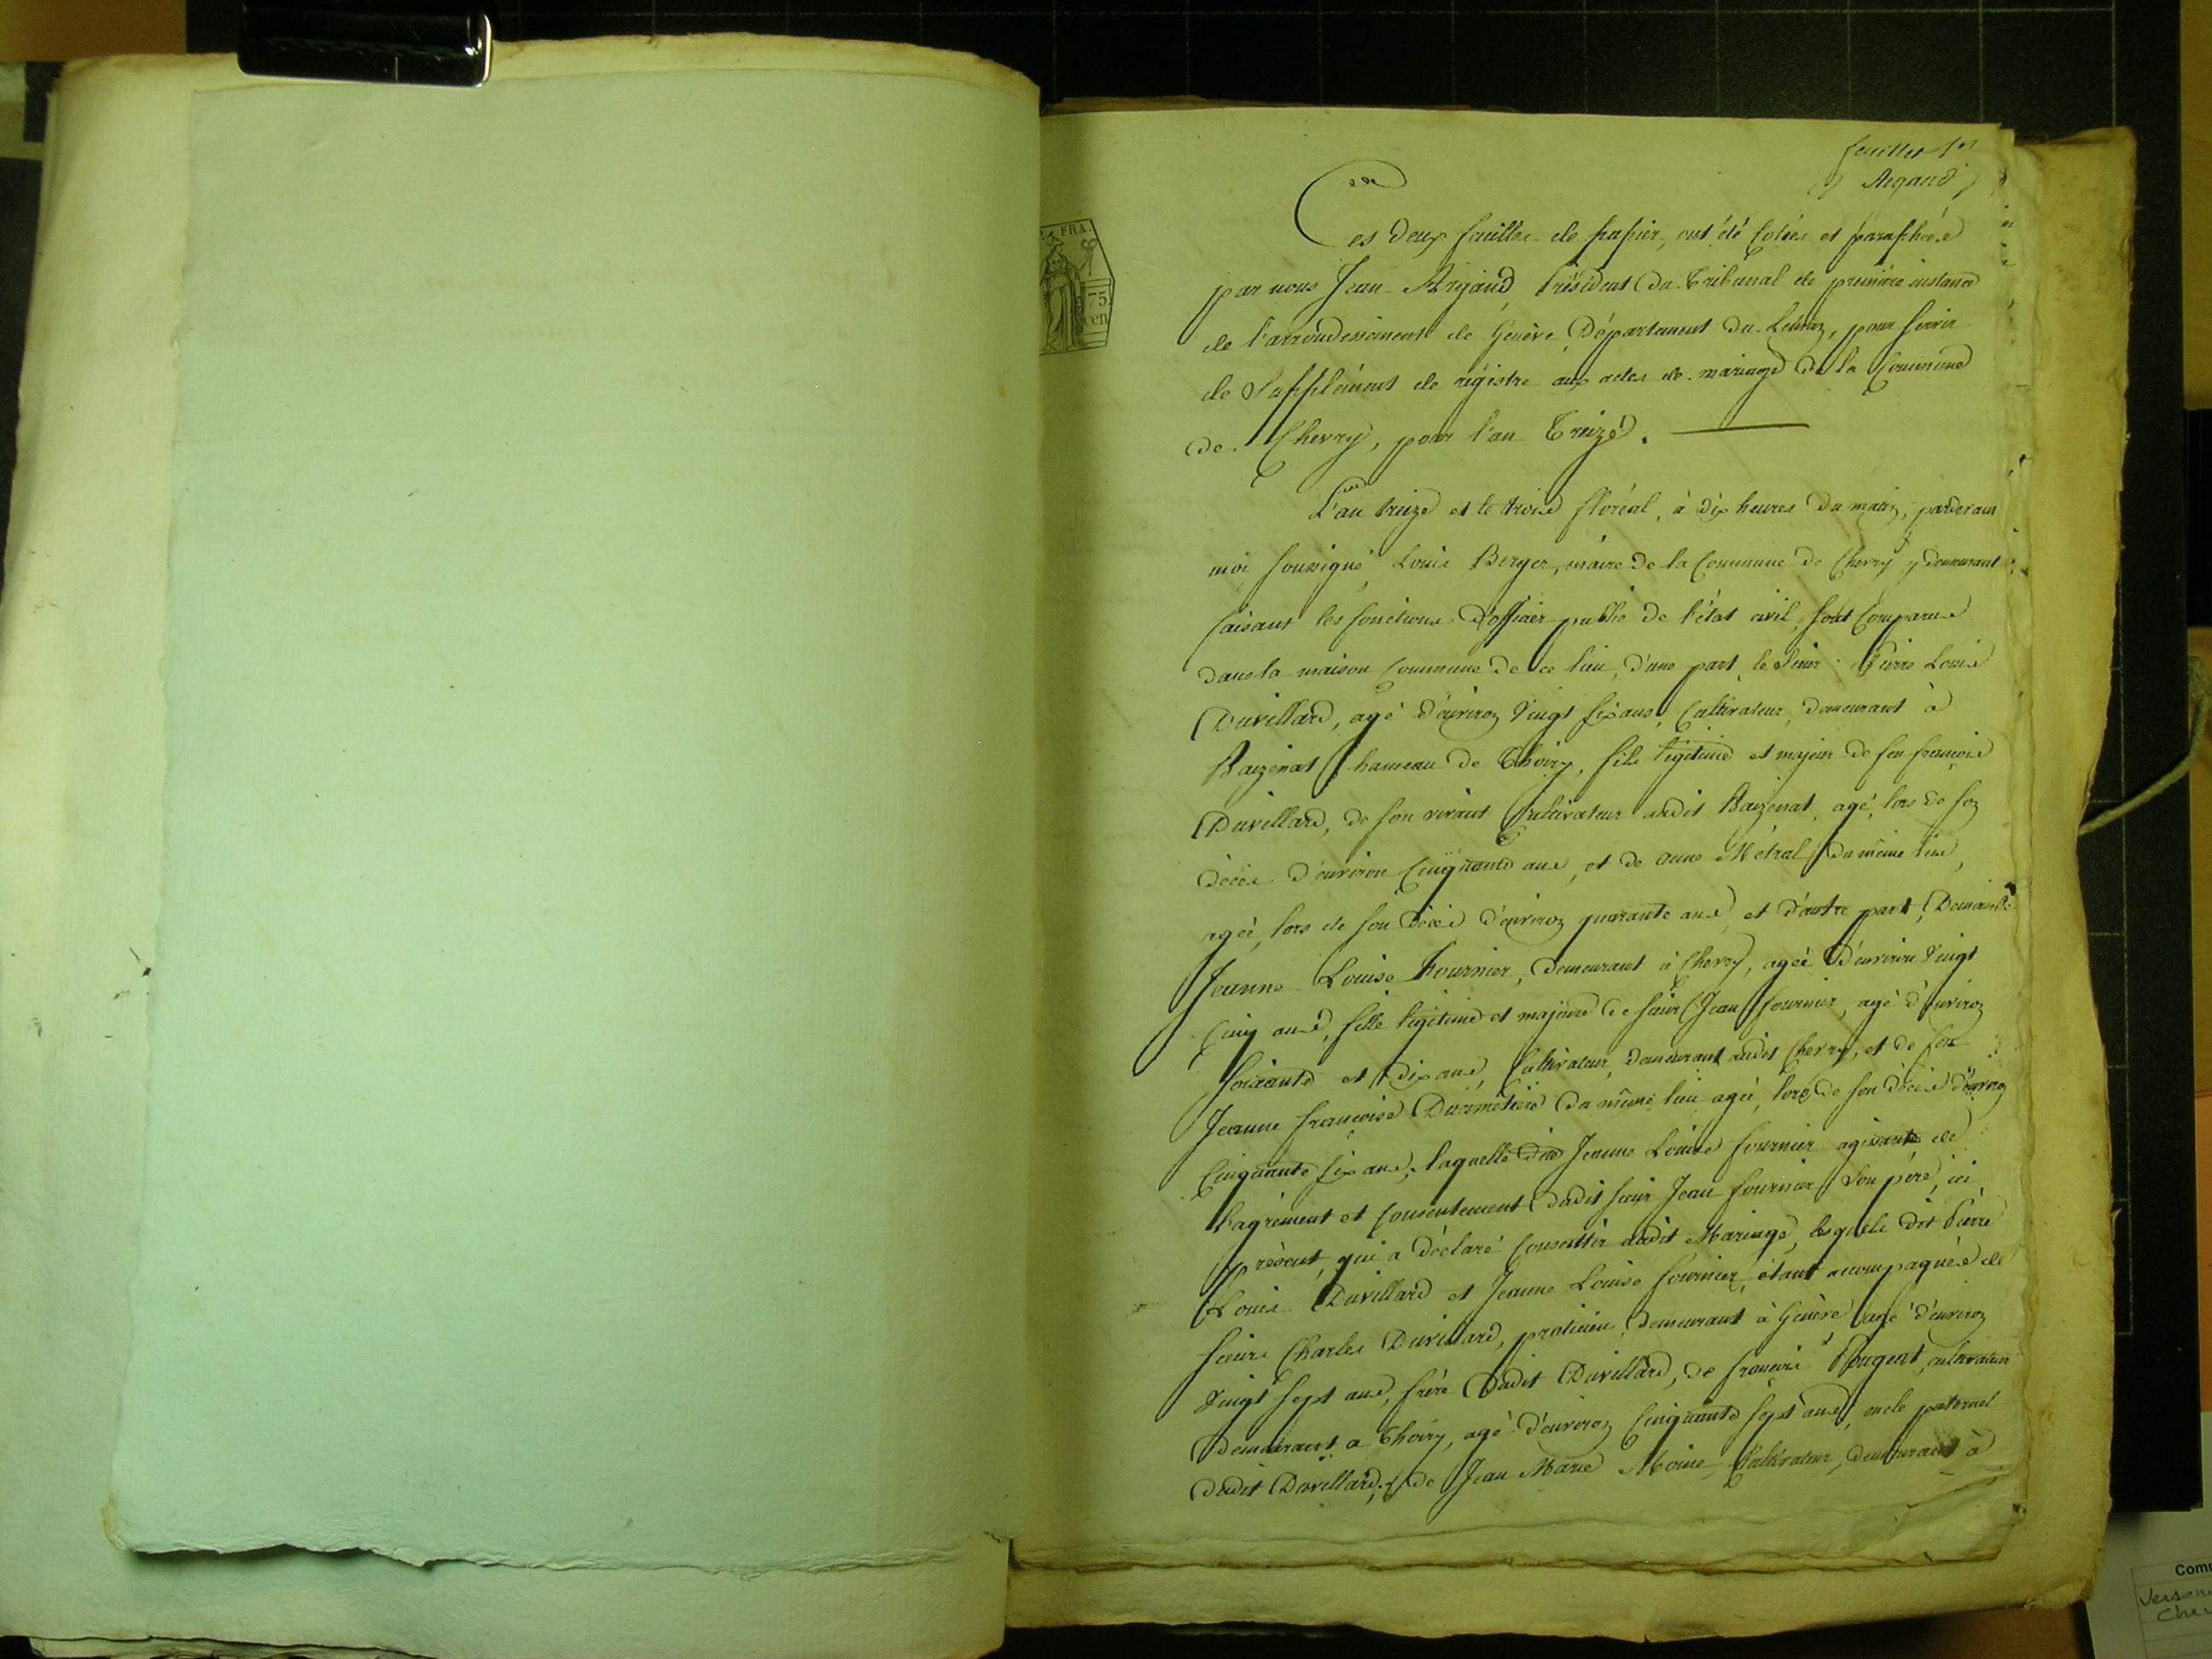 feuillet 1er
Argand
FRA.
75.
cen
Ces deux feuilles de papier, ont été cotées et paraphées
par nous Jean Argand, Président du Tribunal de première instance
de l'arrondissement de Genève, Département du Léman, pour servir
de Supplément de régistre aux actes de mariage de la Commune
de Chevry, pour l'an Treize.
L'an treize et le trois floréal, à dix heures du matin, pardevant
moi soussigné Louis Berger, maire de la Commune de Chevry y demeurant
faisant les fonctions d'officier public de l'état civil, sont comparus
dans la maison Commune de ce lieu, d'une part, le Sieur Pierre Louis
Duvillard, agé d'environ Vingt six ans, Cultivateur, demeurant à
Baizenat hameau de Thoiry, fils légitime et majeur de feu françois
Duvillard, de son vivant Cultivateur audit Baizenat, agé, lors de son
décès d'environ Cinquante ans, et de anne Métral du même lieu,
agée, lors de son décès d'environ quarante ans, et d'autre part, Demoiselle
Jeanne Louise Fournier, demeurant à Chevry, agée d'environ Vingt
Cinq ans, fille légitime et majeure de sieur Jean Fournier, agé d'environ
soixante et dix ans, Cultivateur, demeurant audit Chevry, et de feue
Jeanne françoise Durimetière du même lieu agée, lors de son décès d'environ
Cinquante six ans; laquelle dite Jeanne Louise fournier agissante de
l'agrement et consentement dudit sieur Jean fournier son père, ici
présent, qui a déclaré Consentir audit Mariage, lesquels dit Pierre
Louis Duvillard et Jeanne Louise fournier, étant accompagnés de
sieurs Charles Duvillard, praticien, demeurant à Genève agé d'environ
Vingt sept ans, frère dudit Duvillard, de françois Pougeat, cultivateur
demeurant a Thoiry, agé d'environ Cinquante sept ans, oncle paternel
dudit Duvillard, de Jean Marie Moine, Cultivateur, demeurant à
Com
Verson
Che